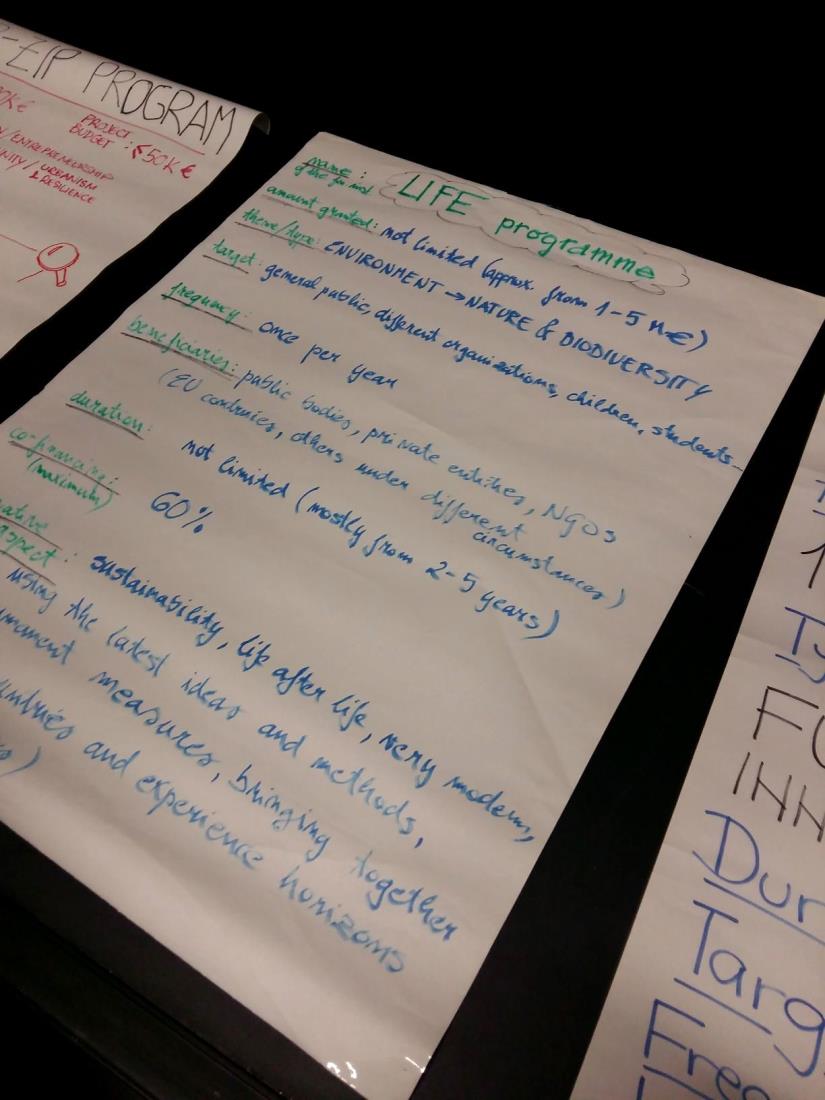 -ZIP PROGRAM
0K€
PROJECT
BUDGET : <50K€
/ENTREPRENEURSHIP
NITY / URBANISM
& RESILIENCE
name :
LIFE programme
amount granted: not limited (approx. from 1-5 M€)
theme/type: ENVIRONMENT → NATURE & BIODIVERSITY
target: general public, different organizations, children, students...
frequency: once per year
beneficiaries: public bodies, private entities, NGOs
(EU countries, others under different
circumstances)
duration: not limited (mostly from 2-5 years)
co-financing: 60%
(maximum)
ative
aspect : sustainability, life after life, very modern,
using the latest ideas and methods,
manent measures, bringing together
untries and experience horizons
)
Dur
Targ
Freq